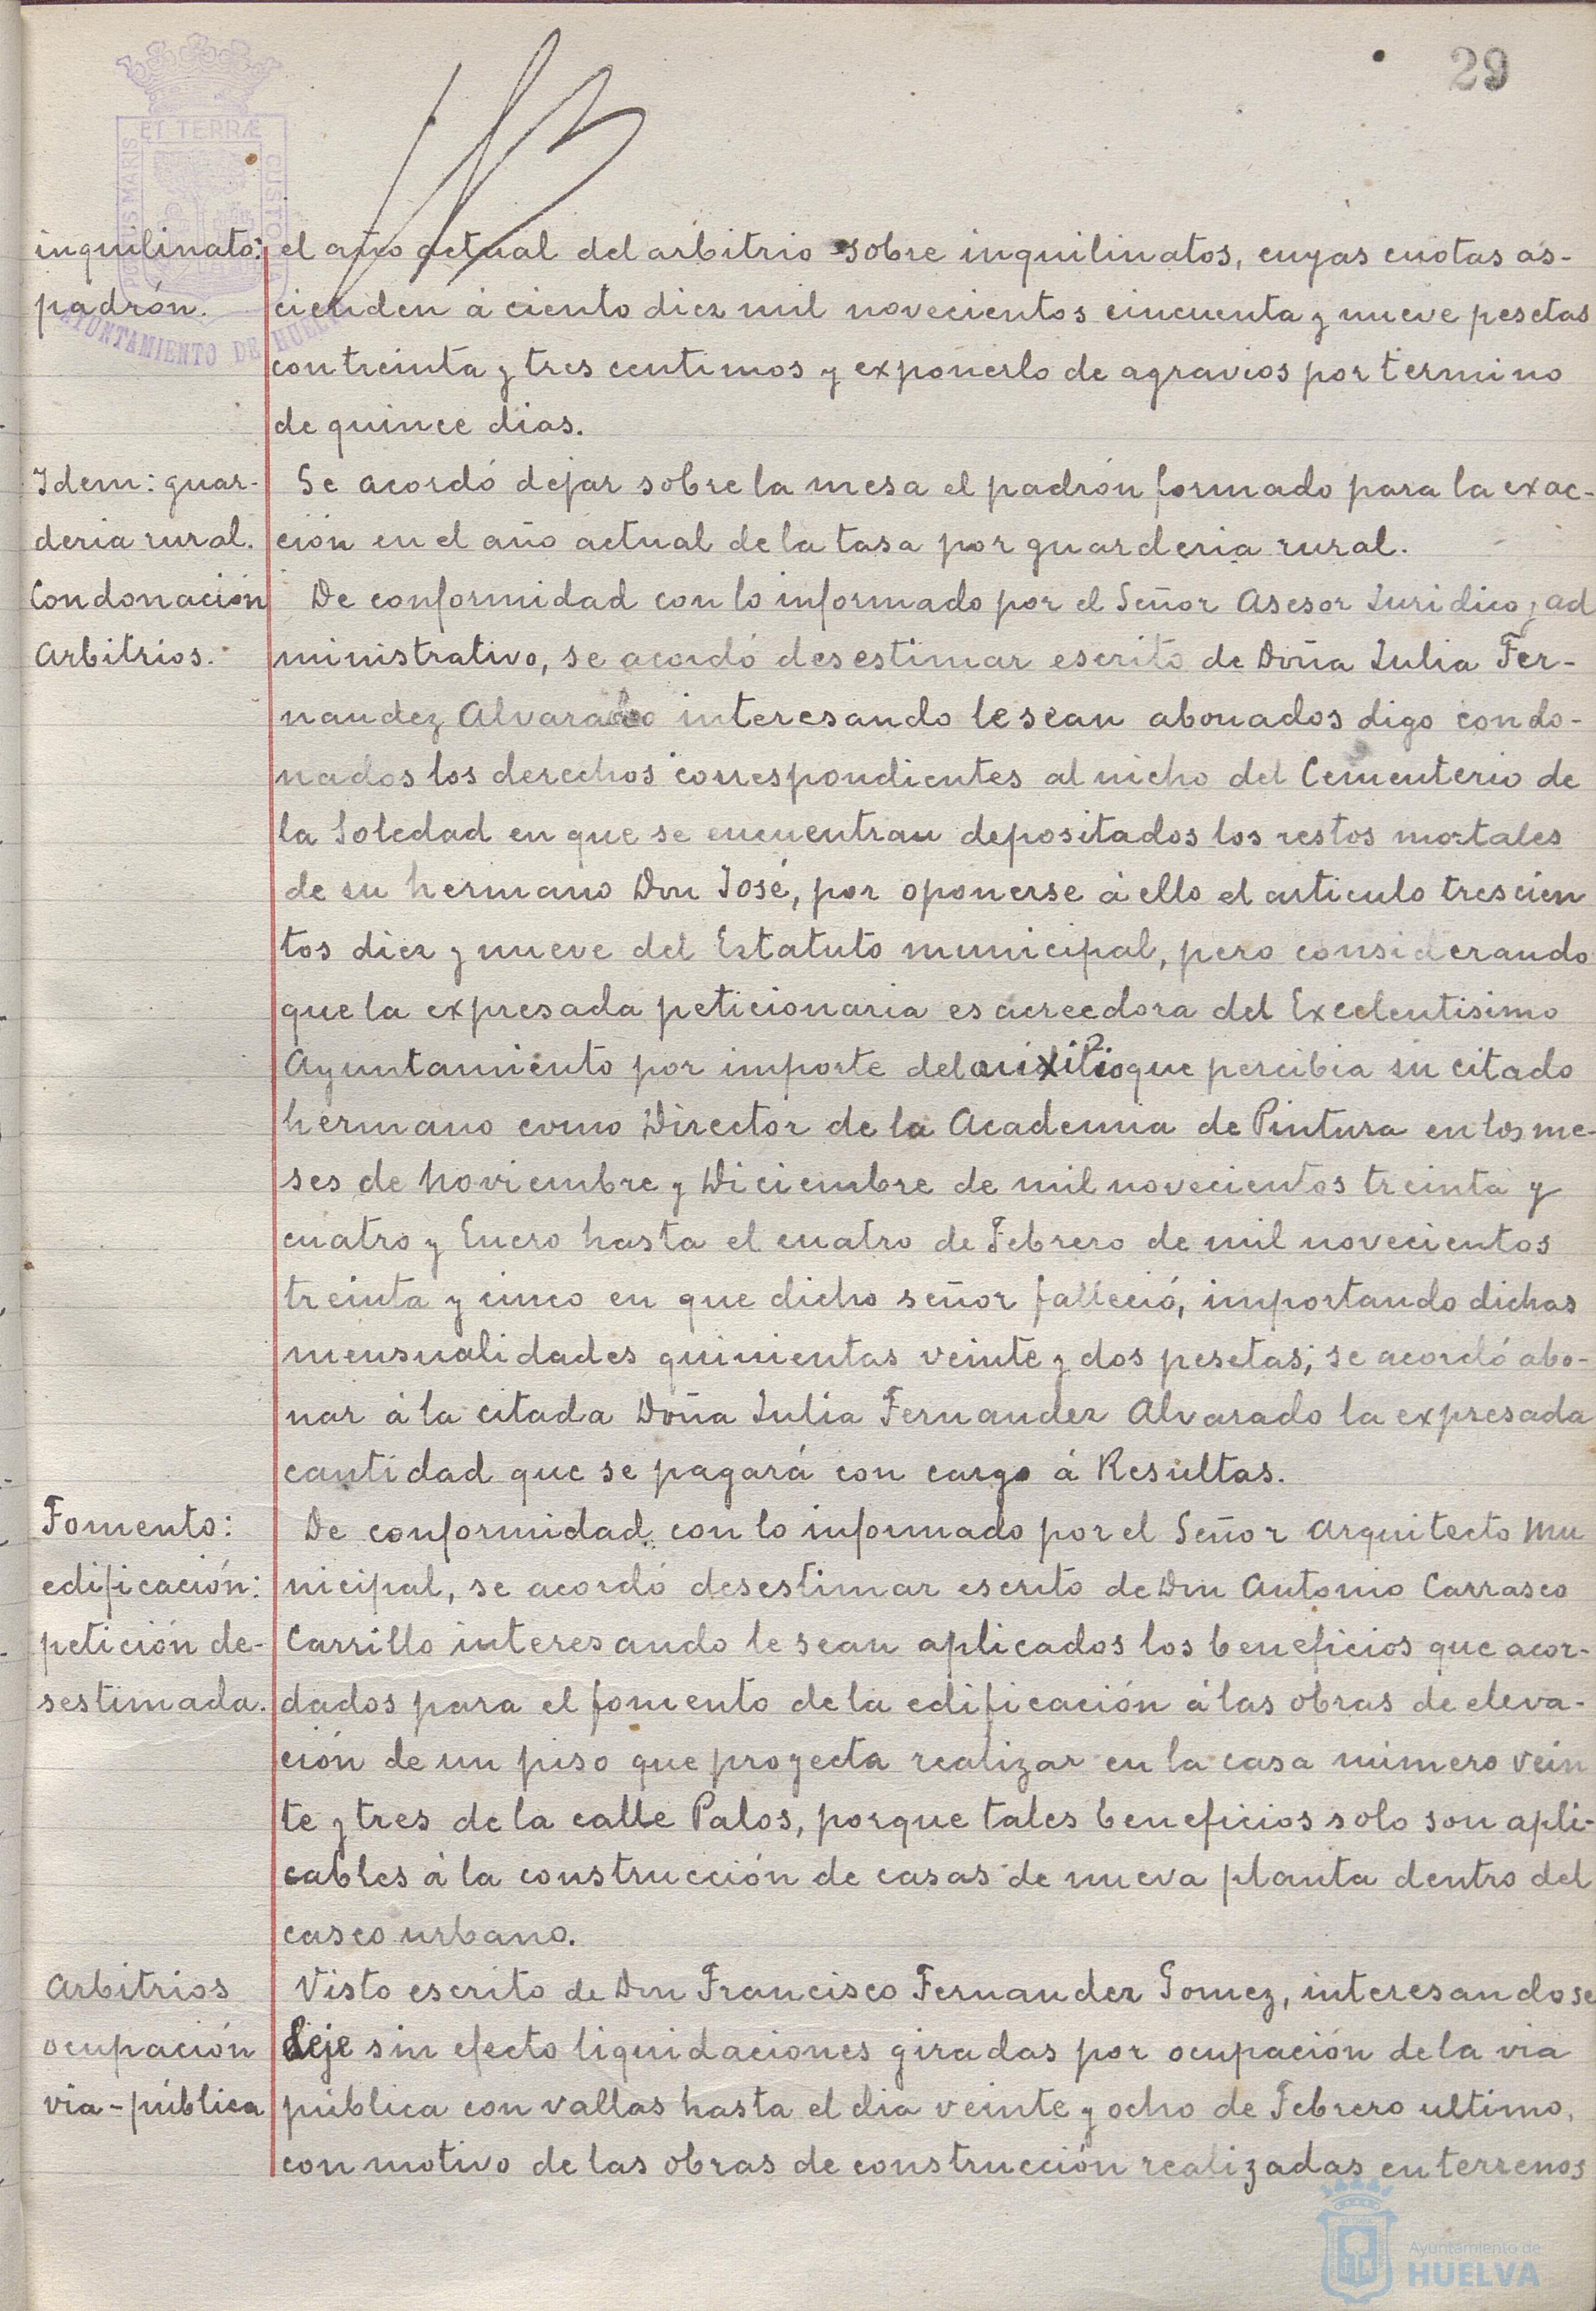 29
ET TERRÆ
MARIS
CUSTO
AYUNTAMIENTO DE HUELVA
inquilinato: el año actual del arbitrio sobre inquilinatos, cuyas cuotas as-
padrón. cienden á ciento diez mil novecientos cincuenta y nueve pesetas
con treinta y tres centimos y exponerlo de agravios por termino
de quince dias.
Idem: guar- Se acordó dejar sobre la mesa el padrón formado para la exac-
deria rural. ción en el año actual de la tasa por guarderia rural.
Condonación De conformidad con lo informado por el Señor Asesor Juridico y ad
Arbitrios. ministrativo, se acordó desestimar escrito de Doña Julia Fer-
nandez Alvarado interesando le sean abonados digo condo-
nados los derechos correspondientes al nicho del Cementerio de
la Soledad en que se encuentran depositados los restos mortales
de su hermano Don José, por oponerse á ello el articulo trescien
tos diez y nueve del Estatuto municipal, pero considerando
que la expresada peticionaria es acreedora del Excelentisimo
Ayuntamiento por importe del auxilio que percibia su citado
hermano como Director de la Academia de Pintura en los me-
ses de Noviembre y Diciembre de mil novecientos treinta y
cuatro y Enero hasta el cuatro de Febrero de mil novecientos
treinta y cinco en que dicho señor falleció, importando dichas
mensualidades quinientas veinte y dos pesetas; se acordó abo-
nar á la citada Doña Julia Fernandez Alvarado la expresada
cantidad que se pagará con cargo á Resultas.
Fomento: De conformidad con lo informado por el Señor Arquitecto Mu
edificación: nicipal, se acordó desestimar escrito de Don Antonio Carrasco
petición de- Carrillo interesando le sean aplicados los beneficios que acor-
sestimada. dados para el fomento de la edificación á las obras de eleva-
ción de un piso que proyecta realizar en la casa número vein
te y tres de la calle Palos, porque tales beneficios solo son apli-
cables á la construcción de casas de nueva planta dentro del
casco urbano.
Arbitrios Visto escrito de Don Francisco Fernandez Gomez, interesando se
ocupación deje sin efecto liquidaciones giradas por ocupación de la via
via-pública pública con vallas hasta el dia veinte y ocho de Febrero ultimo,
con motivo de las obras de construcción realizadas en terrenos
Ayuntamiento de
HUELVA